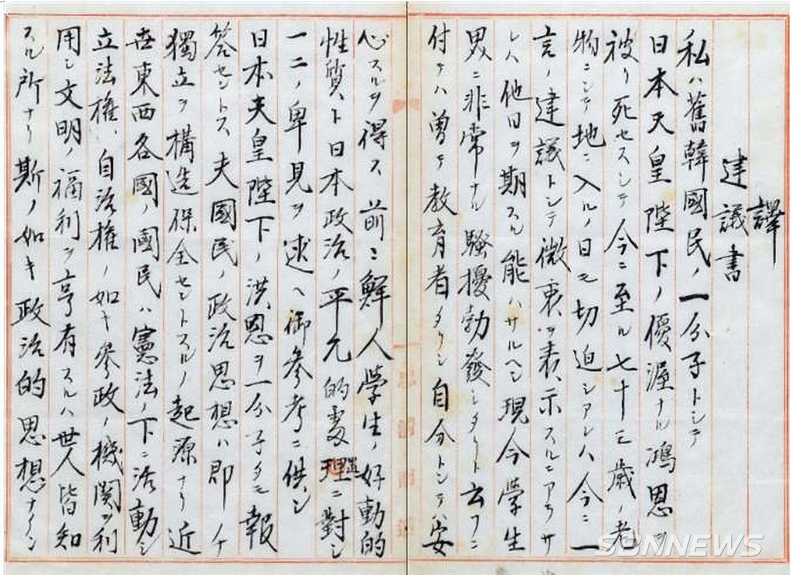 譯
建議書
私ハ舊韓國民ノ一分子トシテ
日本天皇陛下ノ優渥ナル鴻恩ヲ
被リ死セスシテ今ニ至ル七十三歳ノ老
物ニシテ地ニ入ルノ日モ切迫シアレハ今ニ一
言ノ建議トシテ微衷ヲ表示スルニアラサ
レハ他日ヲ期スル能ハサルヘシ現今學生
界ニ非常ナル騒擾勃發シタリト云フニ
付テハ曽テ教育者タリシ自分トシテハ安
忠清南道
心スルヲ得ス前ニ鮮人學生ノ好動的
性質ト日本政治ノ平凡的處理ニ對シ
一二ノ卑見ヲ述ヘ御参考ニ供シ
日本天皇陛下ノ洪恩ヲ一分子タモ報
答セントス夫國民ノ政治思想ハ即チ
獨立ヲ構造保全セントスルノ起源ナリ近
世東西各國ノ國民ハ憲法ノ下ニ活動シ
立法権、自治権ノ如キ参政ノ機関ヲ利
用シ文明ノ福利ヲ享有スルハ世人皆知
スル所ナリ斯ノ如キ政治的思想ナクン
SBNNEWS